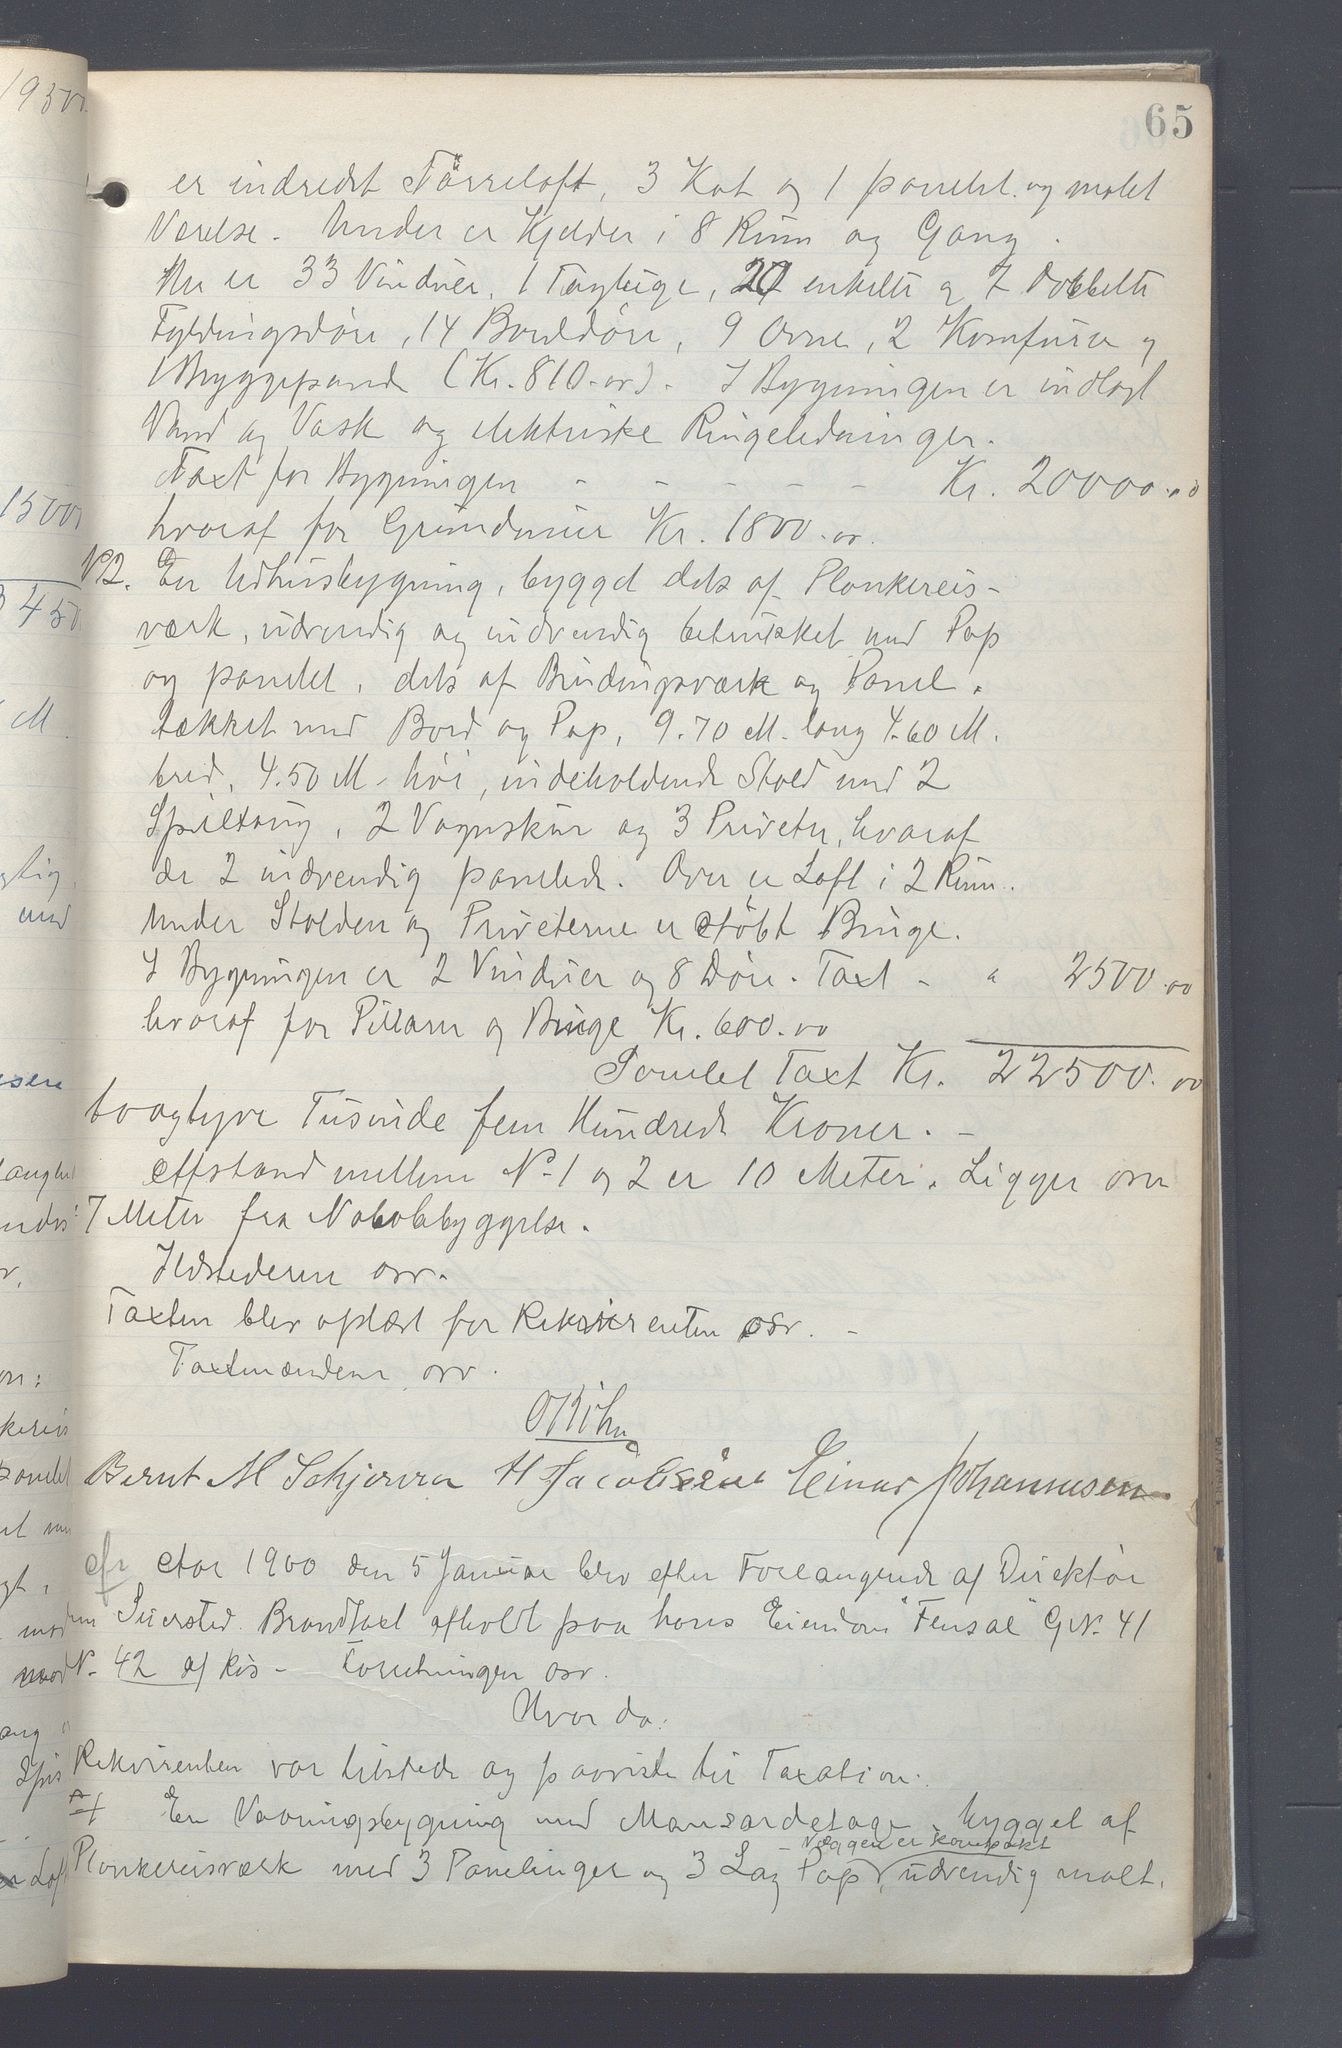 65
er indredet Tørreloft, 3 Kot og 1 panelet og malet
Værelse. Under er Kjelder i 8 Rum og Gang.
Her er 33 Vinduer, 1 Tagluge, 20 enkelte og 7 dobbelte
Fyldingsdøre, 14 Borddøre, 9 Ovne, 2 Komfurer og
1 Bryggepande (Kr. 810.00). I Bygningen er indlagt
Vand og Vask og elektriske Ringeledninger.
Taxt for Bygningen - - - - - Kr. 20000.00
hvoraf for Grundmur Kr. 1800.00.
No 2. En Udhusbygning, bygget dels af Plankereis-
værk, udvendig og indvendig betrukket med Pap
og panelet, dels af Bindingsværk og Panel,
tækket med Bord og Pap, 9.70 M. lang 4.60 M.
bred, 4.50 M. høi, indeholdende Stald med 2
Spiltaug, 2 Vognskur og 3 Priveter, hvoraf
de 2 indvendig panelede. Over er Loft i 2 Rum.
Under Stalden og Priveterne er støbt Binge.
I Bygningen er 2 Vinduer og 8 Døre. Taxt - " 2500.00
hvoraf for Pillarer og Binge Kr. 600.00
Samlet Taxt Kr. 22500.00
toogtyve Tusinde fem Hundrede Kroner. -
Afstand mellem No 1 og 2 er 10 Meter. Ligger over
7 Meter fra Nabobebyggelse.
Ildstederne osv.
Taxten blev oplæst for Rekvirenten osv. -
Taxtmændene osv.
Bernt M Schjerven H Jacobsen Einar Johannesen
Aar 1900 den 5 Januar blev efter Forlangende af Direktør
Brandtaxt afholdt paa hans Eiendom "Fensal" G.N. 41
N. 42 af Ris - Forretningen osv.
Hvor da:
Rekvirenten var tilstede og paaviste til Taxation:
En Vaaningsbygning med Mansardetage, bygget af
Væggen er kompakt
Plankereisværk med 3 Panelinger og 3 Lag Pap, udvendig malt,